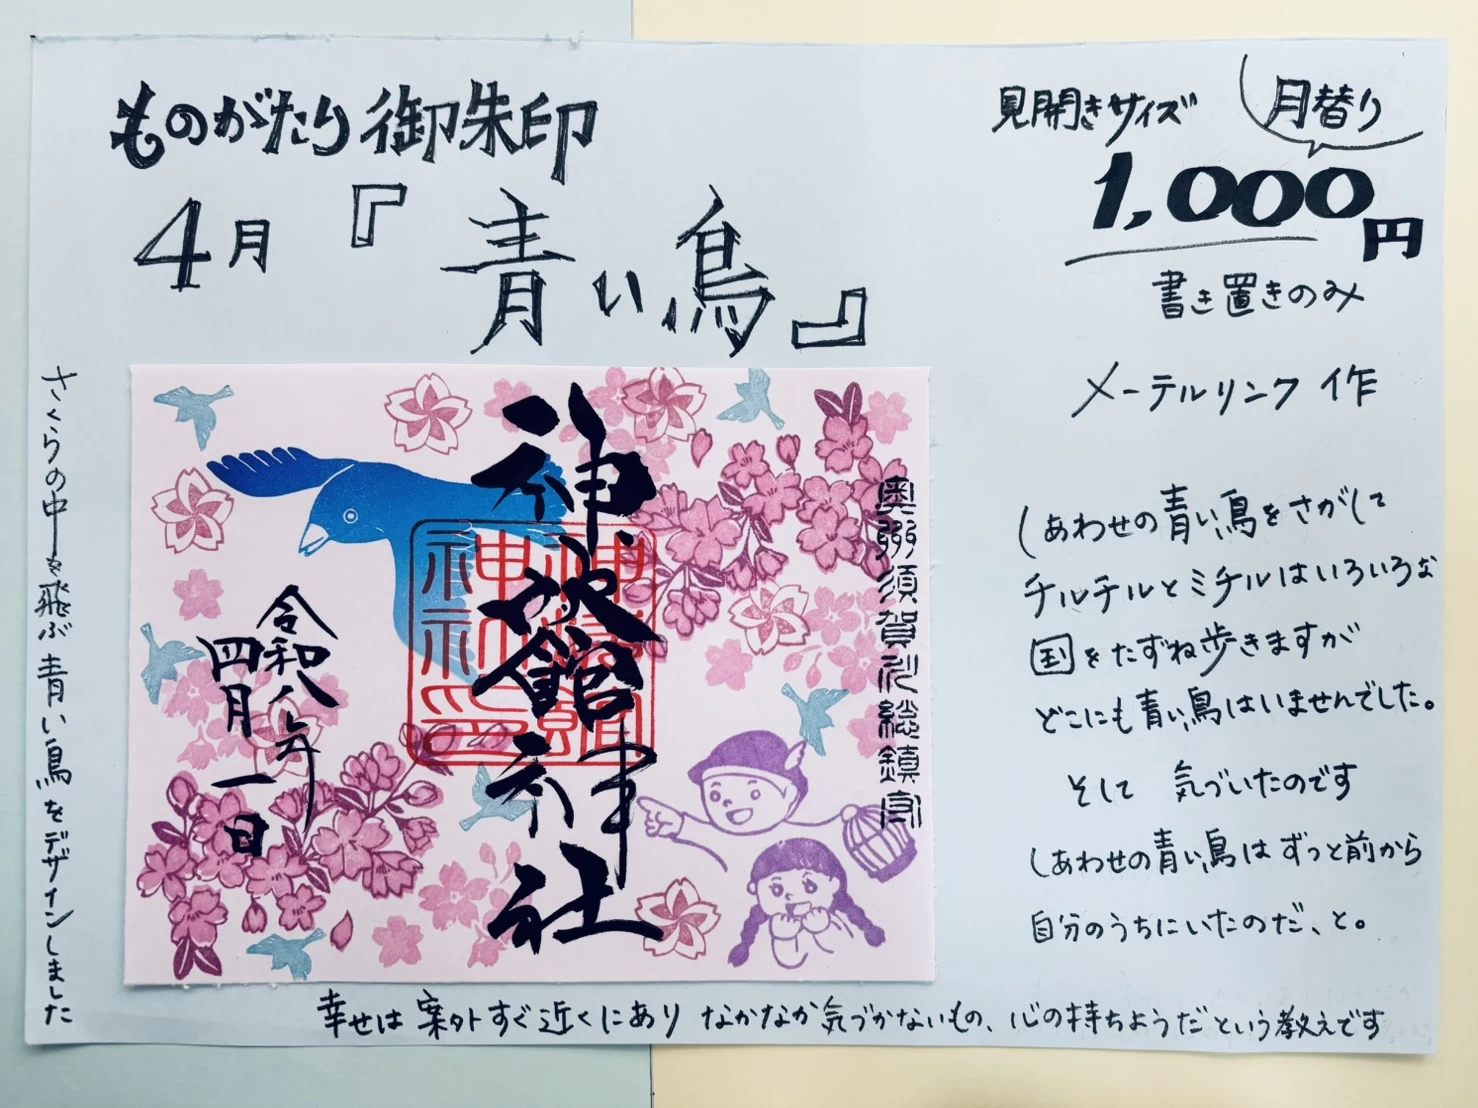 ものがたり御朱印
4月『青い鳥』
見開きサイズ
月替り
1,000円
書き置きのみ
メーテルリンク 作
しあわせの青い鳥をさがして
チルチルとミチルはいろいろな
国をたずね歩きますが
どこにも青い鳥はいませんでした。
そして 気づいたのです
しあわせの青い鳥はずっと前から
自分のうちにいたのだ、と。
さくらの中を飛ぶ青い鳥をデザインしました
奥州須賀川総鎮守
神炊館神社
令和八年
四月一日
幸せは案外すぐ近くにあり なかなか気づかないもの、心の持ちようだという教えです